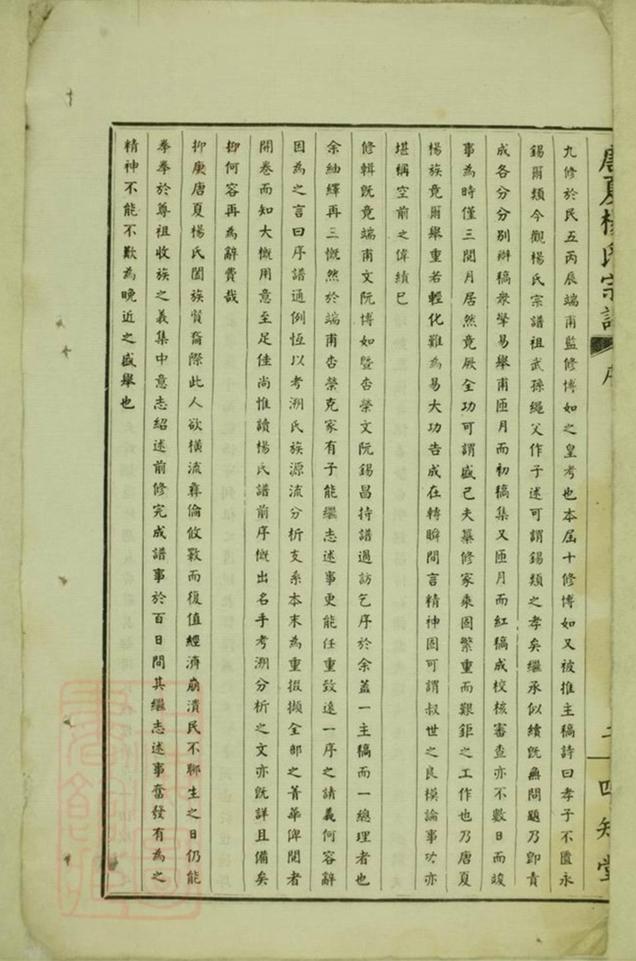 唐夏楊氏宗譜 序 四知堂
九修於民五丙辰端甫監修博如之皇考也本屆十修博如又被推主稿詩曰孝子不匱永
錫爾類今觀楊氏宗譜祖武孫繩父作子述可謂錫類之孝矣繼承似續既無問題乃卽責
成各分分別辦稿衆擎易舉甫匝月而初稿集又匝月而紅稿成校核審查亦不數日而竣
事為時僅三閱月居然竟厥全功可謂盛已夫纂修家乘固繁重而艱鉅之工作也乃唐夏
楊族竟爾舉重若輕化難為易大功告成在轉瞬間言精神固可謂叔世之良模論事功亦
堪稱空前之偉績巳
修輯既竟端甫文阮博如暨杏榮文阮錫昌持譜過訪乞序於余蓋一主稿而一總理者也
余紬繹再三慨然於端甫杏榮克家有子能繼志述事更能任重致遠一序之請義何容辭
因為之言曰序譜通例恆以考溯氏族源流分析支系本末為重掇擷全部之菁華俾閱者
開卷而知大概用意至足佳尚惟讀楊氏譜前序概出名手考溯分析之文亦既詳且備矣
抑何容再為辭費哉
抑庚唐夏楊氏闔族賢裔際此人欲橫流彝倫攸斁而復值經濟崩潰民不聊生之日仍能
拳拳於尊祖收族之義集中意志紹述前修完成譜事於百日間其繼志述事奮發有為之
精神不能不歎為晚近之盛舉也